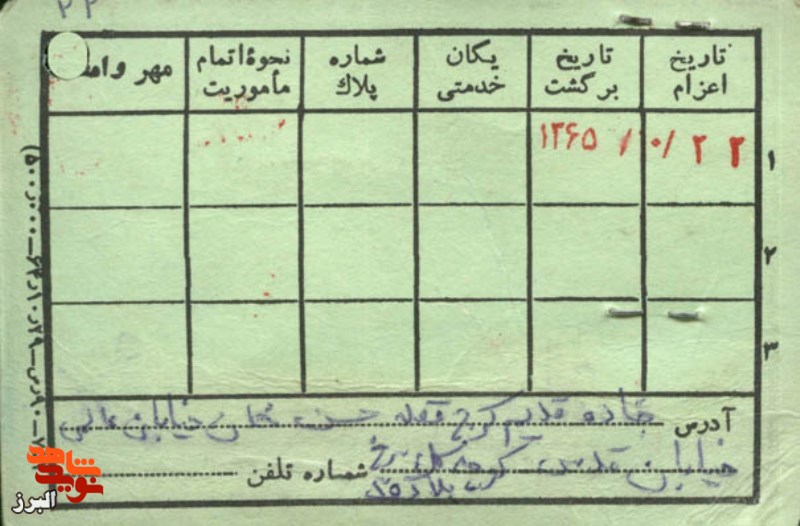 ۲۲
تاریخ اعزام
تاریخ برگشت
یکان خدمتی
شماره پلاك
نحوهٔ اتمام مأموریت
مهر و
۱
۲۲ /۱۰/ ۱۳۶۵
۲
۳
آدرس جاده قدیم کرج قلعه حسن خان خیابان
خیابان قدس کوچه گل سرخ پلاک
شماره تلفن
شاهد
نوید
البرز